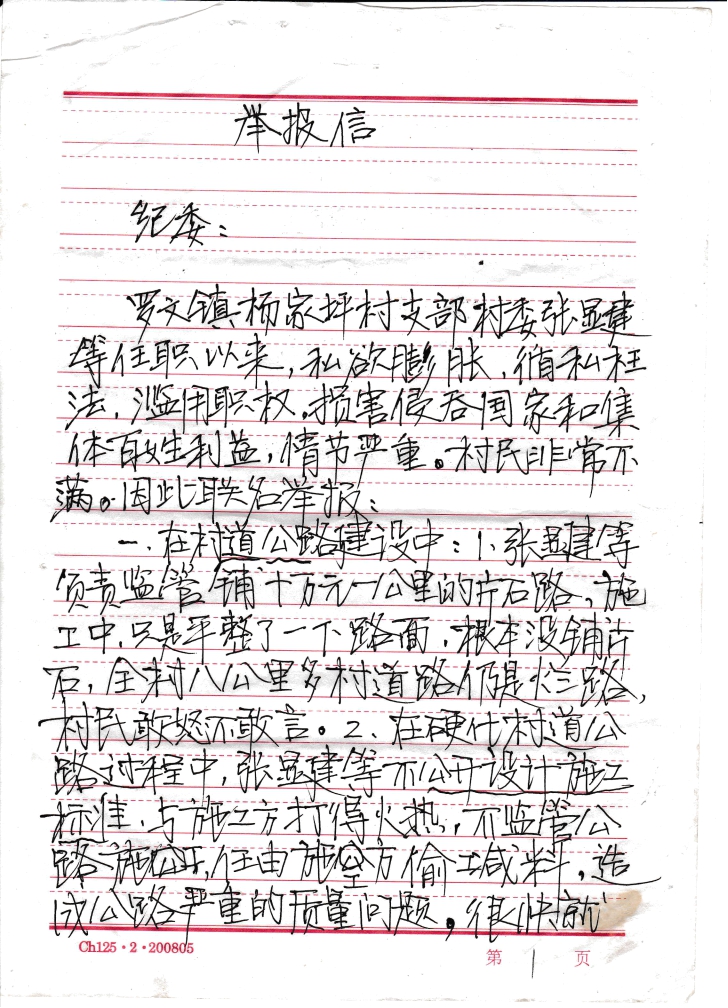 举报信
纪委：
罗文镇杨家坪村支部村委张显建
等任职以来，私欲膨胀，循私枉
法，滥用职权。损害侵吞国家和集
体百姓生利益，情节严重。村民非常不
满。因此联名举报：
一、在村道公路建设中：1、张显建等
负责监管铺十万元一公里的片石路，施
工中，只是平整了一下路面，根本没铺片
石，全村八公里多村道路仍是烂路，
村民敢怒不敢言。2、在硬化村道公
路过程中，张显建等不公开设计施工
标准，与施工方打得火热，不监管公
路施工，任由施工方偷工减料，造
成公路严重的质量问题。很快就
Ch125·2·200805
第 1 页